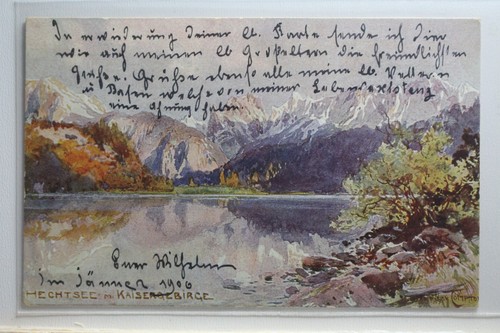 In erwiderung Deiner lb. Karte sende ich Dier
wie auch meinen lb Großeltern die freundlichsten
Grüße. Grüße ebenso alle meine lb. Vettern
u Basen welche von meiner Lebensexistenz
eine Ahnung haben.
Euer Wilhelm
Im Jänner 1906
HECHTSEE m. KAISERGEBIRGE